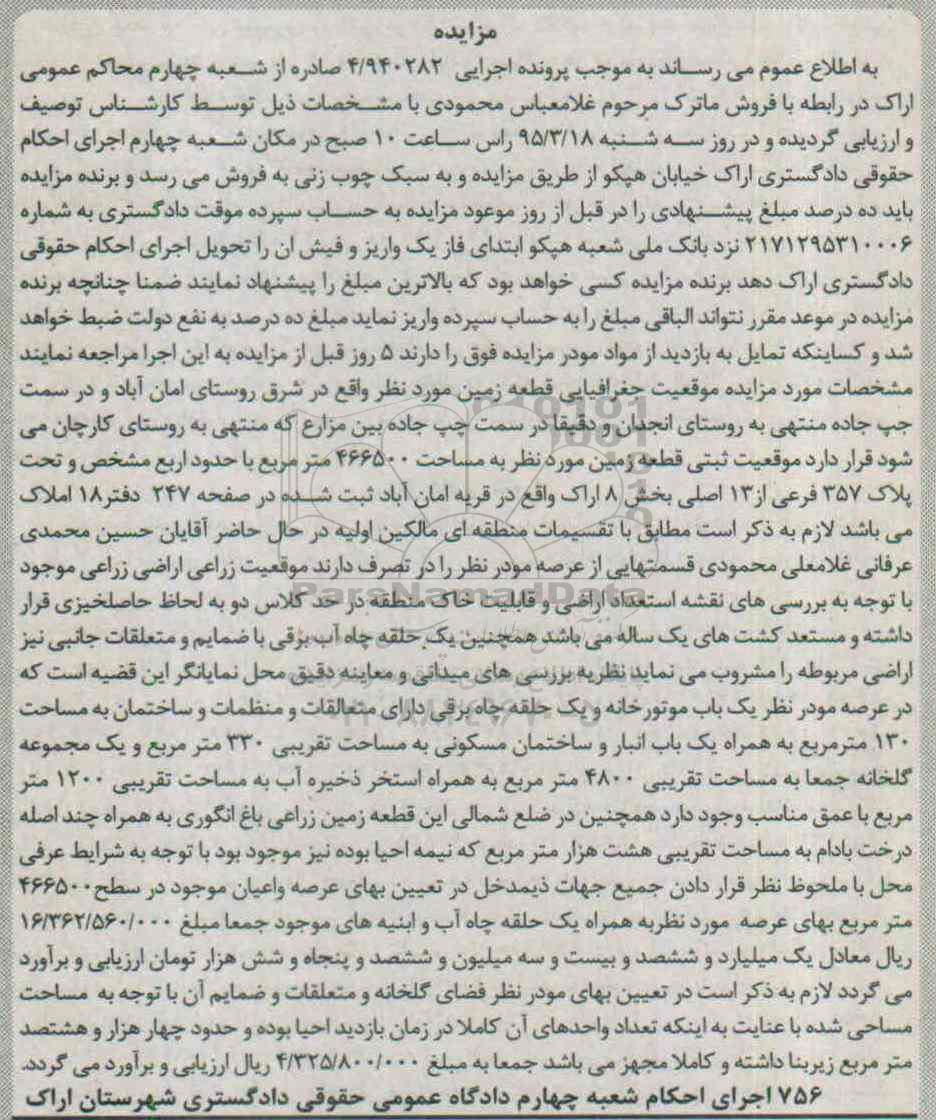 مزایده
به اطلاع عموم می رساند به موجب پرونده اجرایی ۴/۹۴۰۲۸۲ صادره از شعبه چهارم محاکم عمومی
اراک در رابطه با فروش ماترک مرحوم غلامعباس محمودی با مشخصات ذیل توسط کارشناس توصیف
و ارزیابی گردیده و در روز سه شنبه ۹۵/۳/۱۸ راس ساعت ۱۰ صبح در مکان شعبه چهارم اجرای احکام
حقوقی دادگستری اراک خیابان هپکو از طریق مزایده و به سبک چوب زنی به فروش می رسد و برنده مزایده
باید ده درصد مبلغ پیشنهادی را در قبل از روز موعود مزایده به حساب سپرده موقت دادگستری به شماره
۲۱۷۱۲۹۵۳۱۰۰۰۶ نزد بانک ملی شعبه هپکو ابتدای فاز یک واریز و فیش ان را تحویل اجرای احکام حقوقی
دادگستری اراک دهد برنده مزایده کسی خواهد بود که بالاترین مبلغ را پیشنهاد نمایند ضمنا چنانچه برنده
مزایده در موعد مقرر نتواند الباقی مبلغ را به حساب سپرده واریز نماید مبلغ ده درصد به نفع دولت ضبط خواهد
شد و کساینکه تمایل به بازدید از مواد مودر مزایده فوق را دارند ۵ روز قبل از مزایده به این اجرا مراجعه نمایند
مشخصات مورد مزایده موقعیت جغرافیایی قطعه زمین مورد نظر واقع در شرق روستای امان آباد و در سمت
چپ جاده منتهی به روستای انجدان و دقیقا در سمت چپ جاده بین مزارع که منتهی به روستای کارچان می
شود قرار دارد موقعیت ثبتی قطعه زمین مورد نظر به مساحت ۴۶۶۵۰۰ متر مربع با حدود اربع مشخص و تحت
پلاک ۳۵۷ فرعی از۱۳ اصلی بخش ۸ اراک واقع در قریه امان آباد ثبت شده در صفحه ۲۴۷ دفتر۱۸ املاک
می باشد لازم به ذکر است مطابق با تقسیمات منطقه ای مالکین اولیه در حال حاضر آقایان حسین محمدی
عرفانی غلامعلی محمودی قسمتهایی از عرصه مودر نظر را در تصرف دارند موقعیت زراعی اراضی زراعی موجود
با توجه به بررسی های نقشه استعداد اراضی و قابلیت خاک منطقه در حد کلاس دو به لحاظ حاصلخیزی قرار
داشته و مستعد کشت های یک ساله می باشد همچنین یک حلقه چاه آب برقی با ضمایم و متعلقات جانبی نیز
اراضی مربوطه را مشروب می نماید نظریه بررسی های میدانی و معاینه دقیق محل نمایانگر این قضیه است که
در عرصه مودر نظر یک باب موتورخانه و یک حلقه چاه برقی دارای متعالقات و منظمات و ساختمان به مساحت
۱۳۰ مترمربع به همراه یک باب انبار و ساختمان مسکونی به مساحت تقریبی ۳۳۰ متر مربع و یک مجموعه
گلخانه جمعا به مساحت تقریبی ۴۸۰۰ متر مربع به همراه استخر ذخیره آب به مساحت تقریبی ۱۲۰۰ متر
مربع با عمق مناسب وجود دارد همچنین در ضلع شمالی این قطعه زمین زراعی باغ انگوری به همراه چند اصله
درخت بادام به مساحت تقریبی هشت هزار متر مربع که نیمه احیا بوده نیز موجود بود با توجه به شرایط عرفی
محل با ملحوظ نظر قرار دادن جمیع جهات ذیمدخل در تعیین بهای عرصه واعیان موجود در سطح۴۶۶۵۰۰
متر مربع بهای عرصه مورد نظربه همراه یک حلقه چاه آب و ابنیه های موجود جمعا مبلغ ۱۶/۳۶۲/۵۶۰/۰۰۰
ریال معادل یک میلیارد و ششصد و بیست و سه میلیون و ششصد و پنجاه و شش هزار تومان ارزیابی و برآورد
می گردد لازم به ذکر است در تعیین بهای مودر نظر فضای گلخانه و متعلقات و ضمایم آن با توجه به مساحت
مساحی شده با عنایت به اینکه تعداد واحدهای آن کاملا در زمان بازدید احیا بوده و حدود چهار هزار و هشتصد
متر مربع زیربنا داشته و کاملا مجهز می باشد جمعا به مبلغ ۴/۳۲۵/۸۰۰/۰۰۰ ریال ارزیابی و برآورد می گردد.
۷۵۶ اجرای احکام شعبه چهارم دادگاه عمومی حقوقی دادگستری شهرستان اراک
ParsNamadData